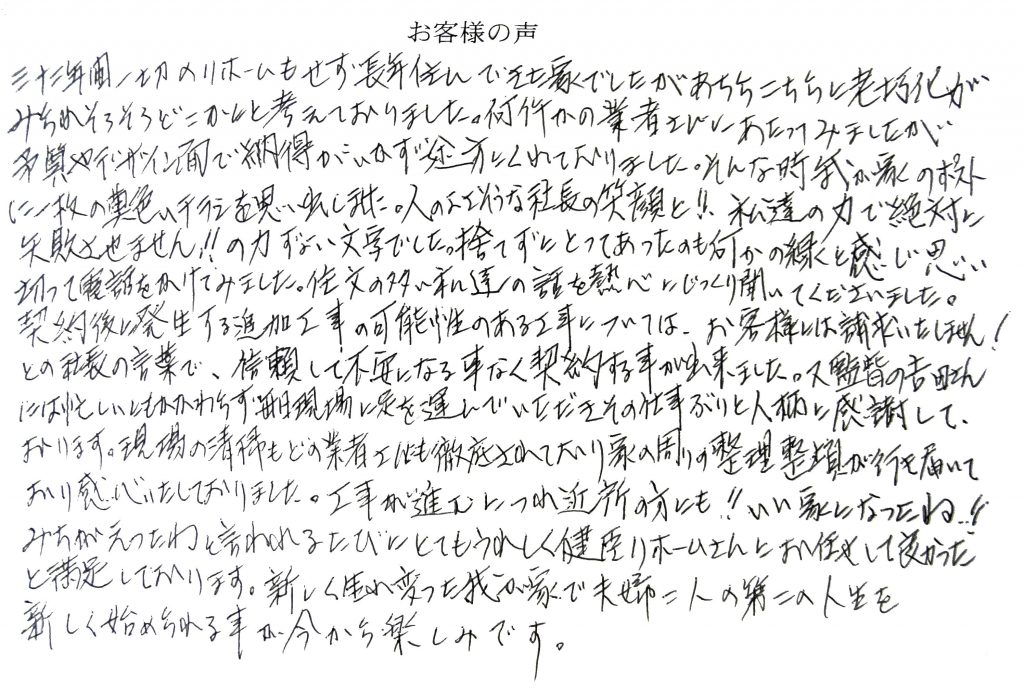 お客様の声
三十三年間一切のリホームもせず長年住んできた家でしたがあちらこちらに老朽化が
みられそろそろどこかにと考えておりました。何件かの業者さんにあたってみましたが
予算やデザイン面で納得がいかず途方にくれておりました。そんな時我が家のポスト
に一枚の黄色いチラシを思い出しました。人のよさそうな社長の笑顔と!!、私達の力で絶対に
失敗させません!!の力ずよい文字でした。捨てずにとってあったのも何かの縁くと感じ思い
切って電話をかけてみました。注文の多い私達の話を熱心にじっくり聞いてくださいました。
契約後に発生する追加工事の可能性のある工事については、お客様には請求いたしません!
との社長の言葉で、信頼して不安になる事なく契約する事が出来ました。又監督の吉田さん
には忙しいにもかかわらず毎日現場に足を運んでいただきその仕事ぶりと人柄に感謝して、
おります。現場の清掃もどの業者さんも徹底されており家の周りの整理整頓が行き届いて
おり感心いたしておりました。工事が進むにつれ近所の方にも!!いい家になったね..!!
みちがえったねと言われるたびにとてもうれしく健匠リホームさんにお任せして良かった
と満足しております。新しく生れ変った我が家で夫婦二人の第二の人生を
新しく始められる事が今から楽しみです。